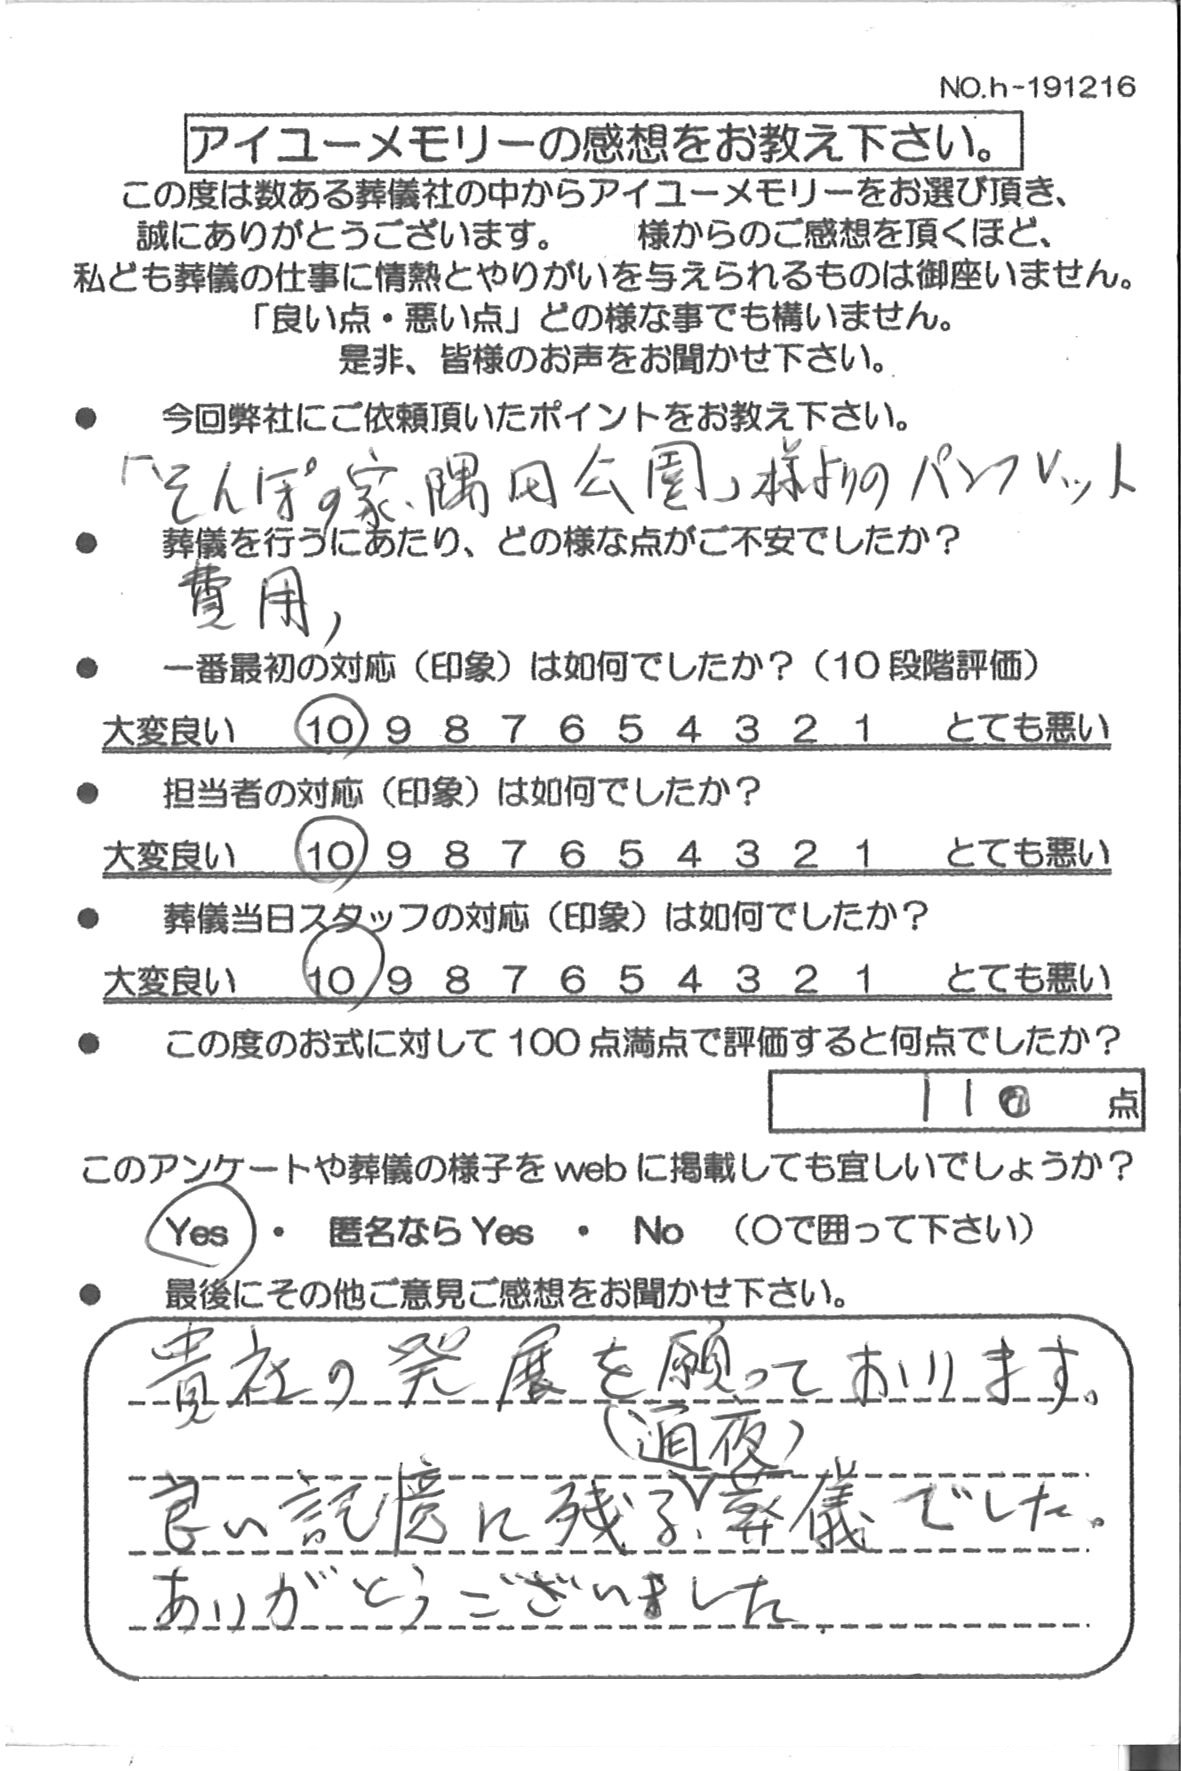 NO.h-191216
アイユーメモリーの感想をお教え下さい。
この度は数ある葬儀社の中からアイユーメモリーをお選び頂き、
誠にありがとうございます。 様からのご感想を頂くほど、
私ども葬儀の仕事に情熱とやりがいを与えられるものは御座いません。
「良い点・悪い点」どの様な事でも構いません。
是非、皆様のお声をお聞かせ下さい。
● 今回弊社にご依頼頂いたポイントをお教え下さい。
「そんぽの家、隅田公園」様よりのパンフレット
● 葬儀を行うにあたり、どの様な点がご不安でしたか？
費用,
● 一番最初の対応（印象）は如何でしたか？（10段階評価）
大変良い 10 9 8 7 6 5 4 3 2 1 とても悪い
● 担当者の対応（印象）は如何でしたか？
大変良い 10 9 8 7 6 5 4 3 2 1 とても悪い
● 葬儀当日スタッフの対応（印象）は如何でしたか？
大変良い 10 9 8 7 6 5 4 3 2 1 とても悪い
● この度のお式に対して100点満点で評価すると何点でしたか？
110 点
このアンケートや葬儀の様子をwebに掲載しても宜しいでしょうか？
Yes ・ 匿名ならYes ・ No （○で囲って下さい）
● 最後にその他ご意見ご感想をお聞かせ下さい。
貴社の発展を願っております。
（通夜）
良い記憶に残る、葬儀でした。
ありがとうございました